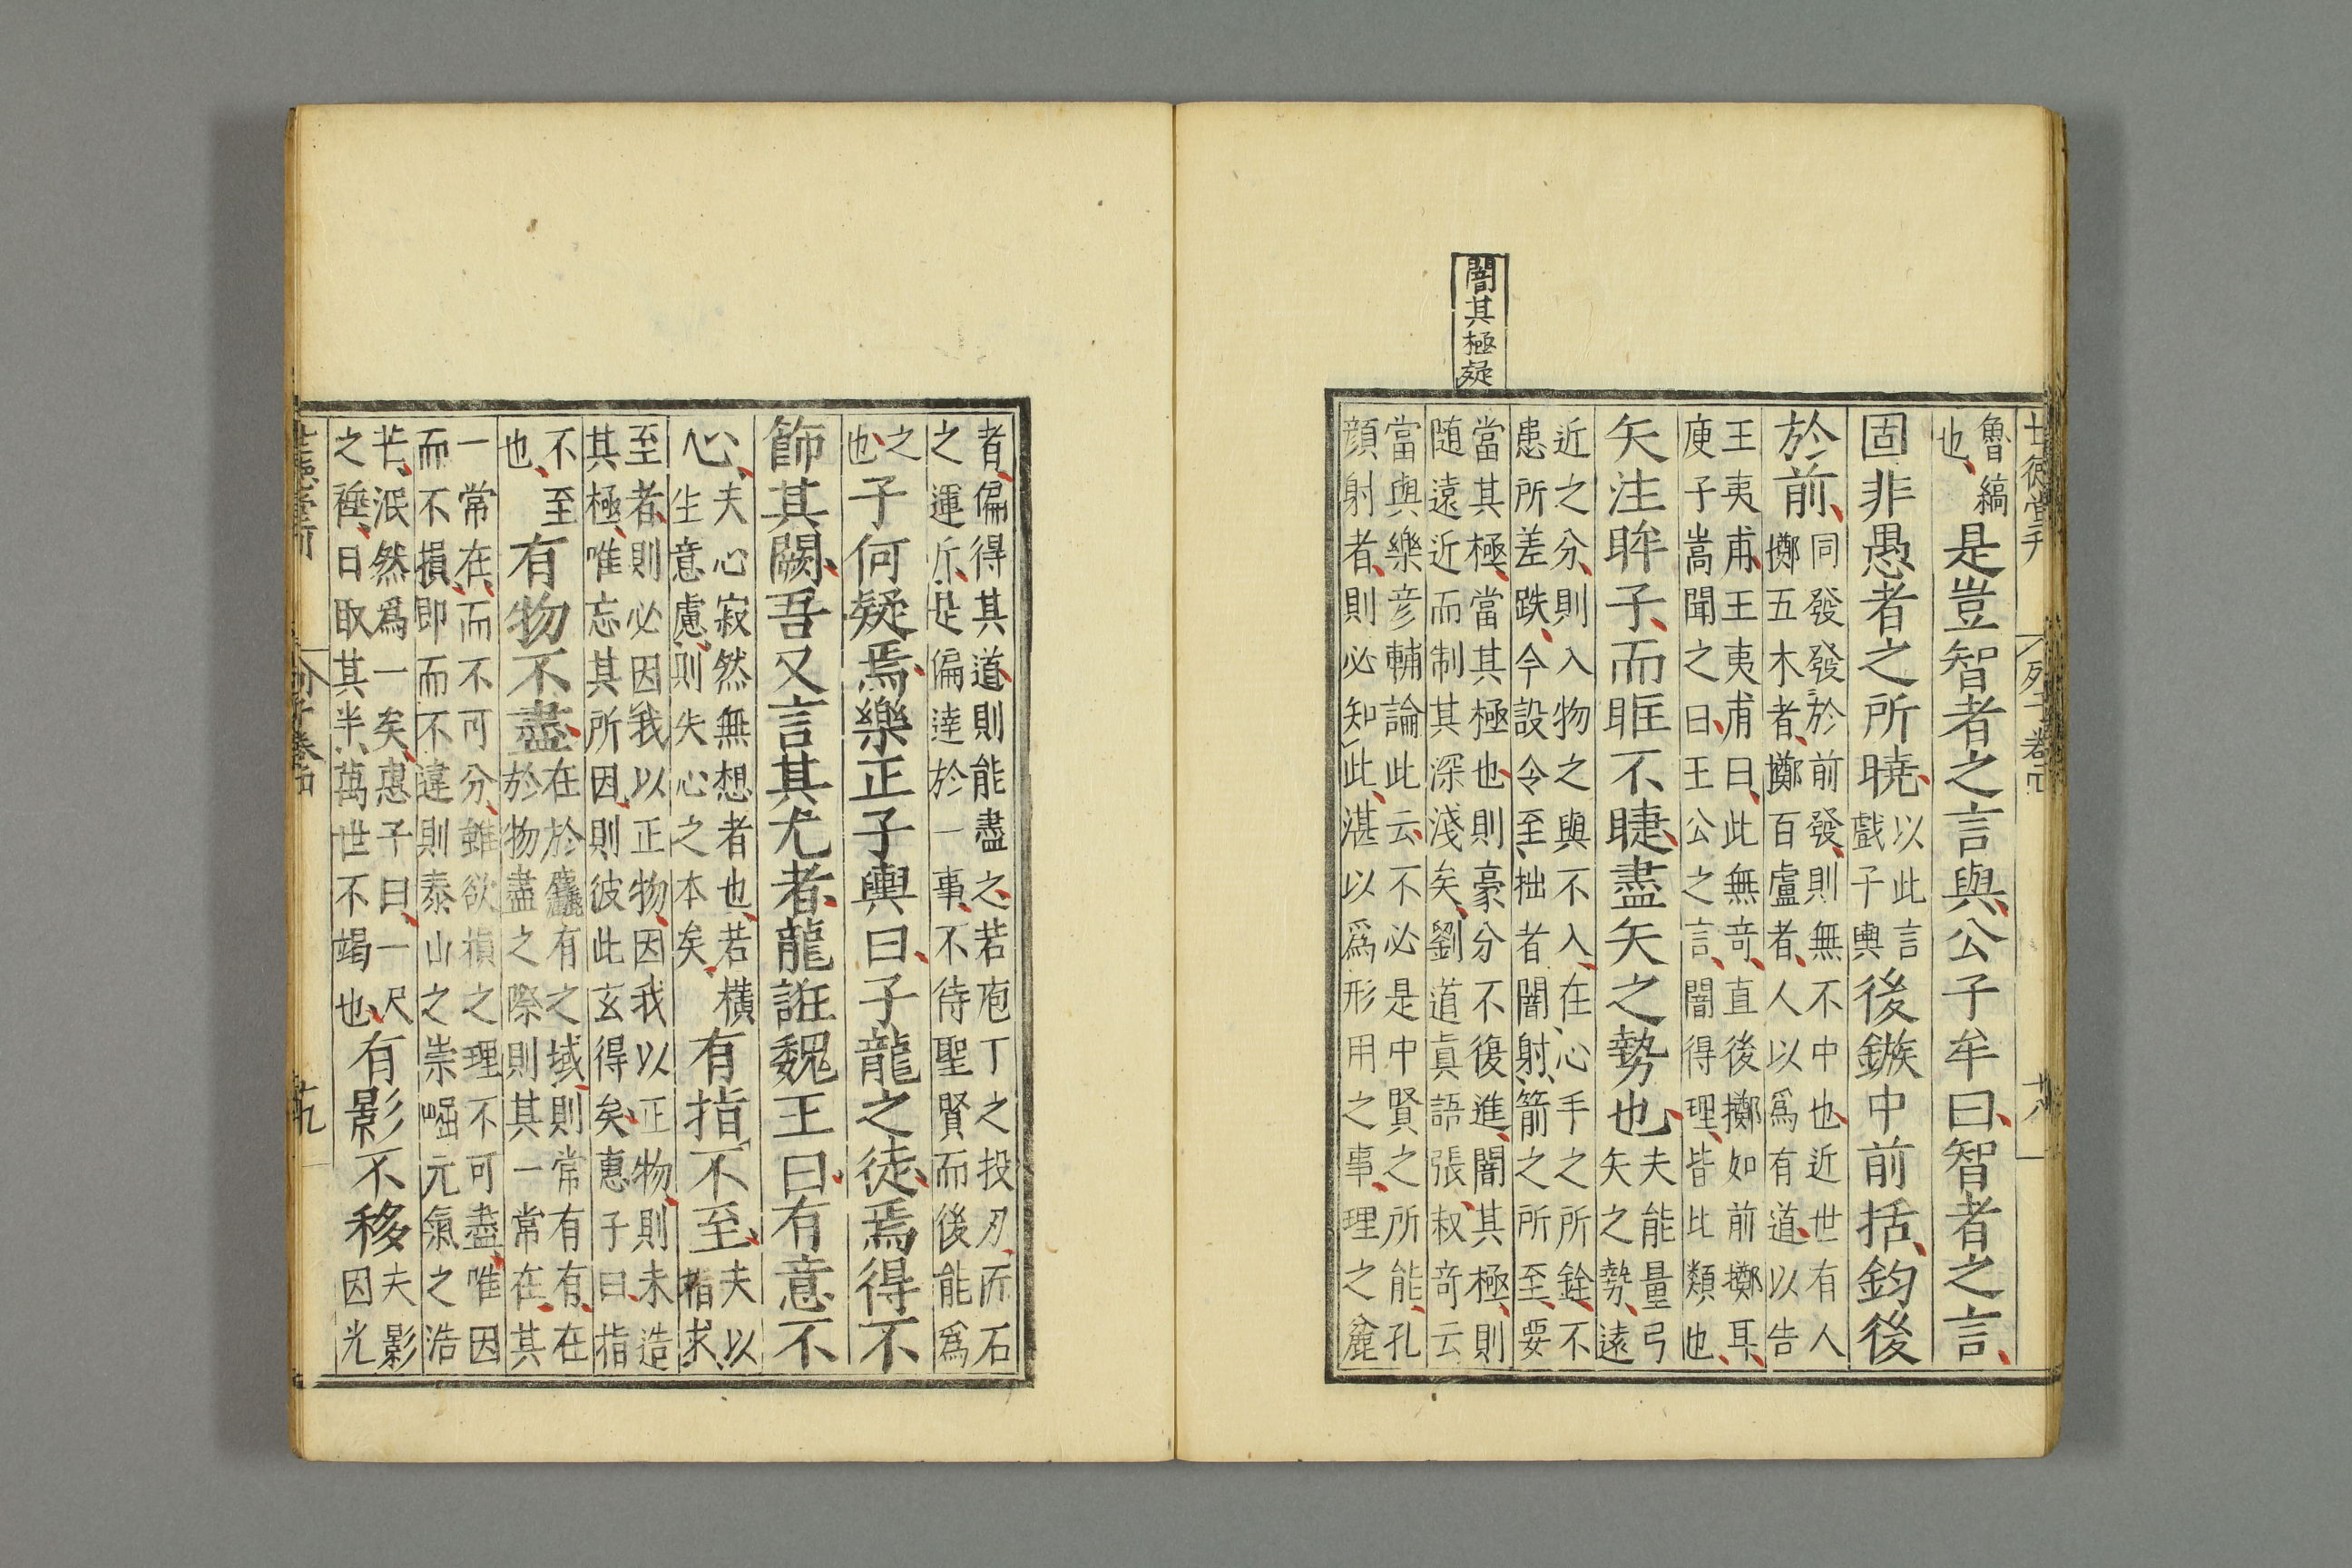 世德堂刊 列子卷四 十八
魯縞也是豈智者之言與公子牟曰智者之言
固非愚者之所曉以此言戲子輿後鏃中前括鈞後
於前同發發於前發則無不中也近世有人擲五木者擲百盧者人以爲有道以告
王夷甫王夷甫曰此無竒直後擲如前擲耳庾子嵩聞之曰王公之言闇得理皆比類也
矢注眸子而眶不睫盡矢之勢也夫能量弓矢之勢遠
近之分則入物之與不入在心手之所銓不患所差跌今設令至拙者闇射箭之所至要
闇其極疑
當其極當其極也則豪分不復進闇其極則随遠近而制其深淺矣劉道眞語張叔竒云
當與樂彦輔論此云不必是中賢之所能孔顔射者則必知此湛以爲形用之事理之麄
者偏得其道則能盡之若庖丁之投刃匠石之運斤是偏達於一事不待聖賢而後能爲
之也子何疑焉樂正子輿曰子龍之徒焉得不
飾其闕吾又言其尤者龍誑魏王曰有意不
心夫心寂然無想者也若横生意慮則失心之本矣有指不至夫以指求
至者則必因我以正物因我以正物則未造其極唯忘其所因則彼此玄得矣惠子曰指
不至也有物不盡在於麤有之域則常有有在於物盡之際則其一常在其
一常在而不可分雖欲損之理不可盡唯因而不損即而不違則泰山之崇崛元氣之浩
芒泯然爲一矣惠子曰一尺之棰日取其半萬世不竭也有影不移夫影因光
世德堂刊 列子卷四 十九